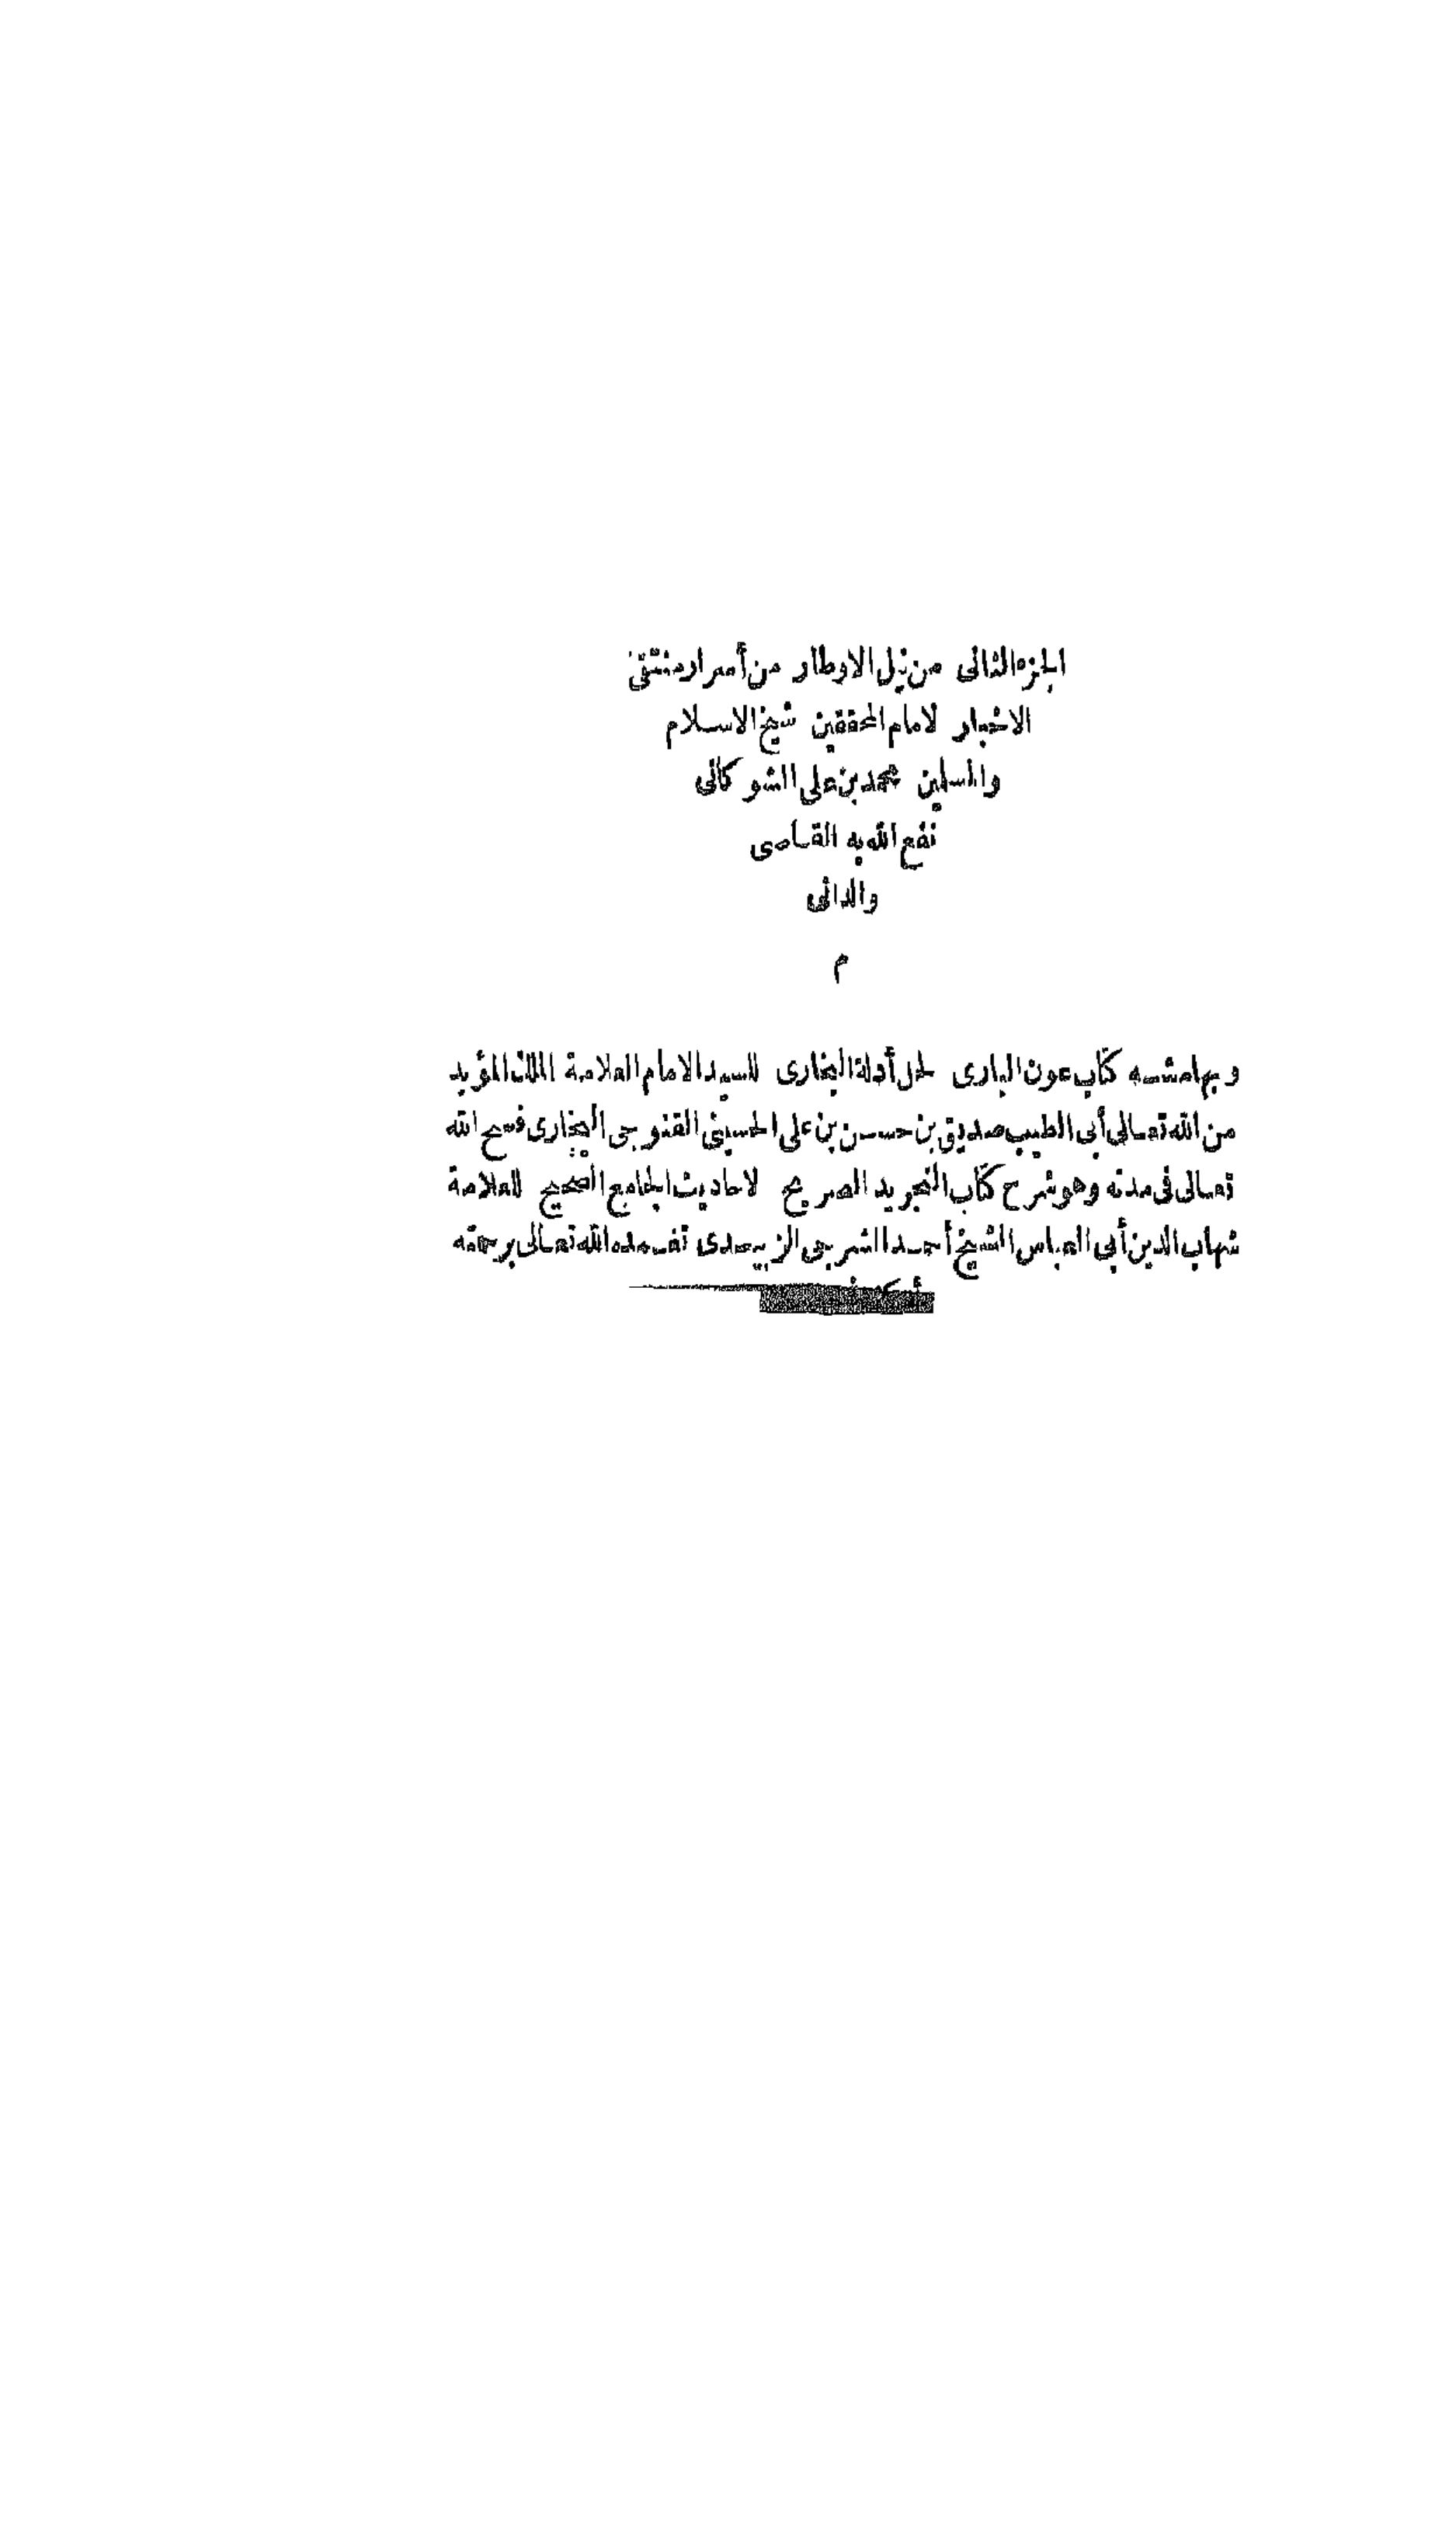 الجزء الثانى من نيل الاوطار من أسرار منتقى
الاخبار لامام المحققين شيخ الاسلام
والمسلمين محمد بن على الشوكانى
نفع الله به القاصى
والدانى
م
وبهامشه كتاب عون البارى لحل أدلة البخارى للسيد الامام العلامة الملك المؤيد
من الله تعالى أبى الطيب صديق بن حسن بن على الحسينى القنوجى البخارى فسح الله
تعالى فى مدته وهو شرح كتاب التجريد الصريح لاحاديث الجامع الصحيح للعلامة
شهاب الدين أبى العباس الشيخ أحمد الشرجى الزبيدى تغمده الله تعالى برحمته